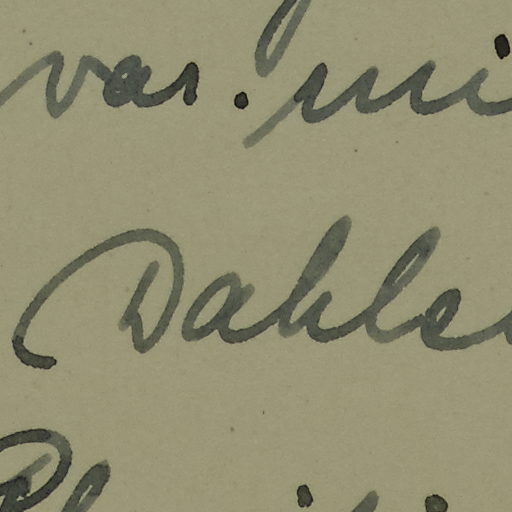 var. mi
Dahle